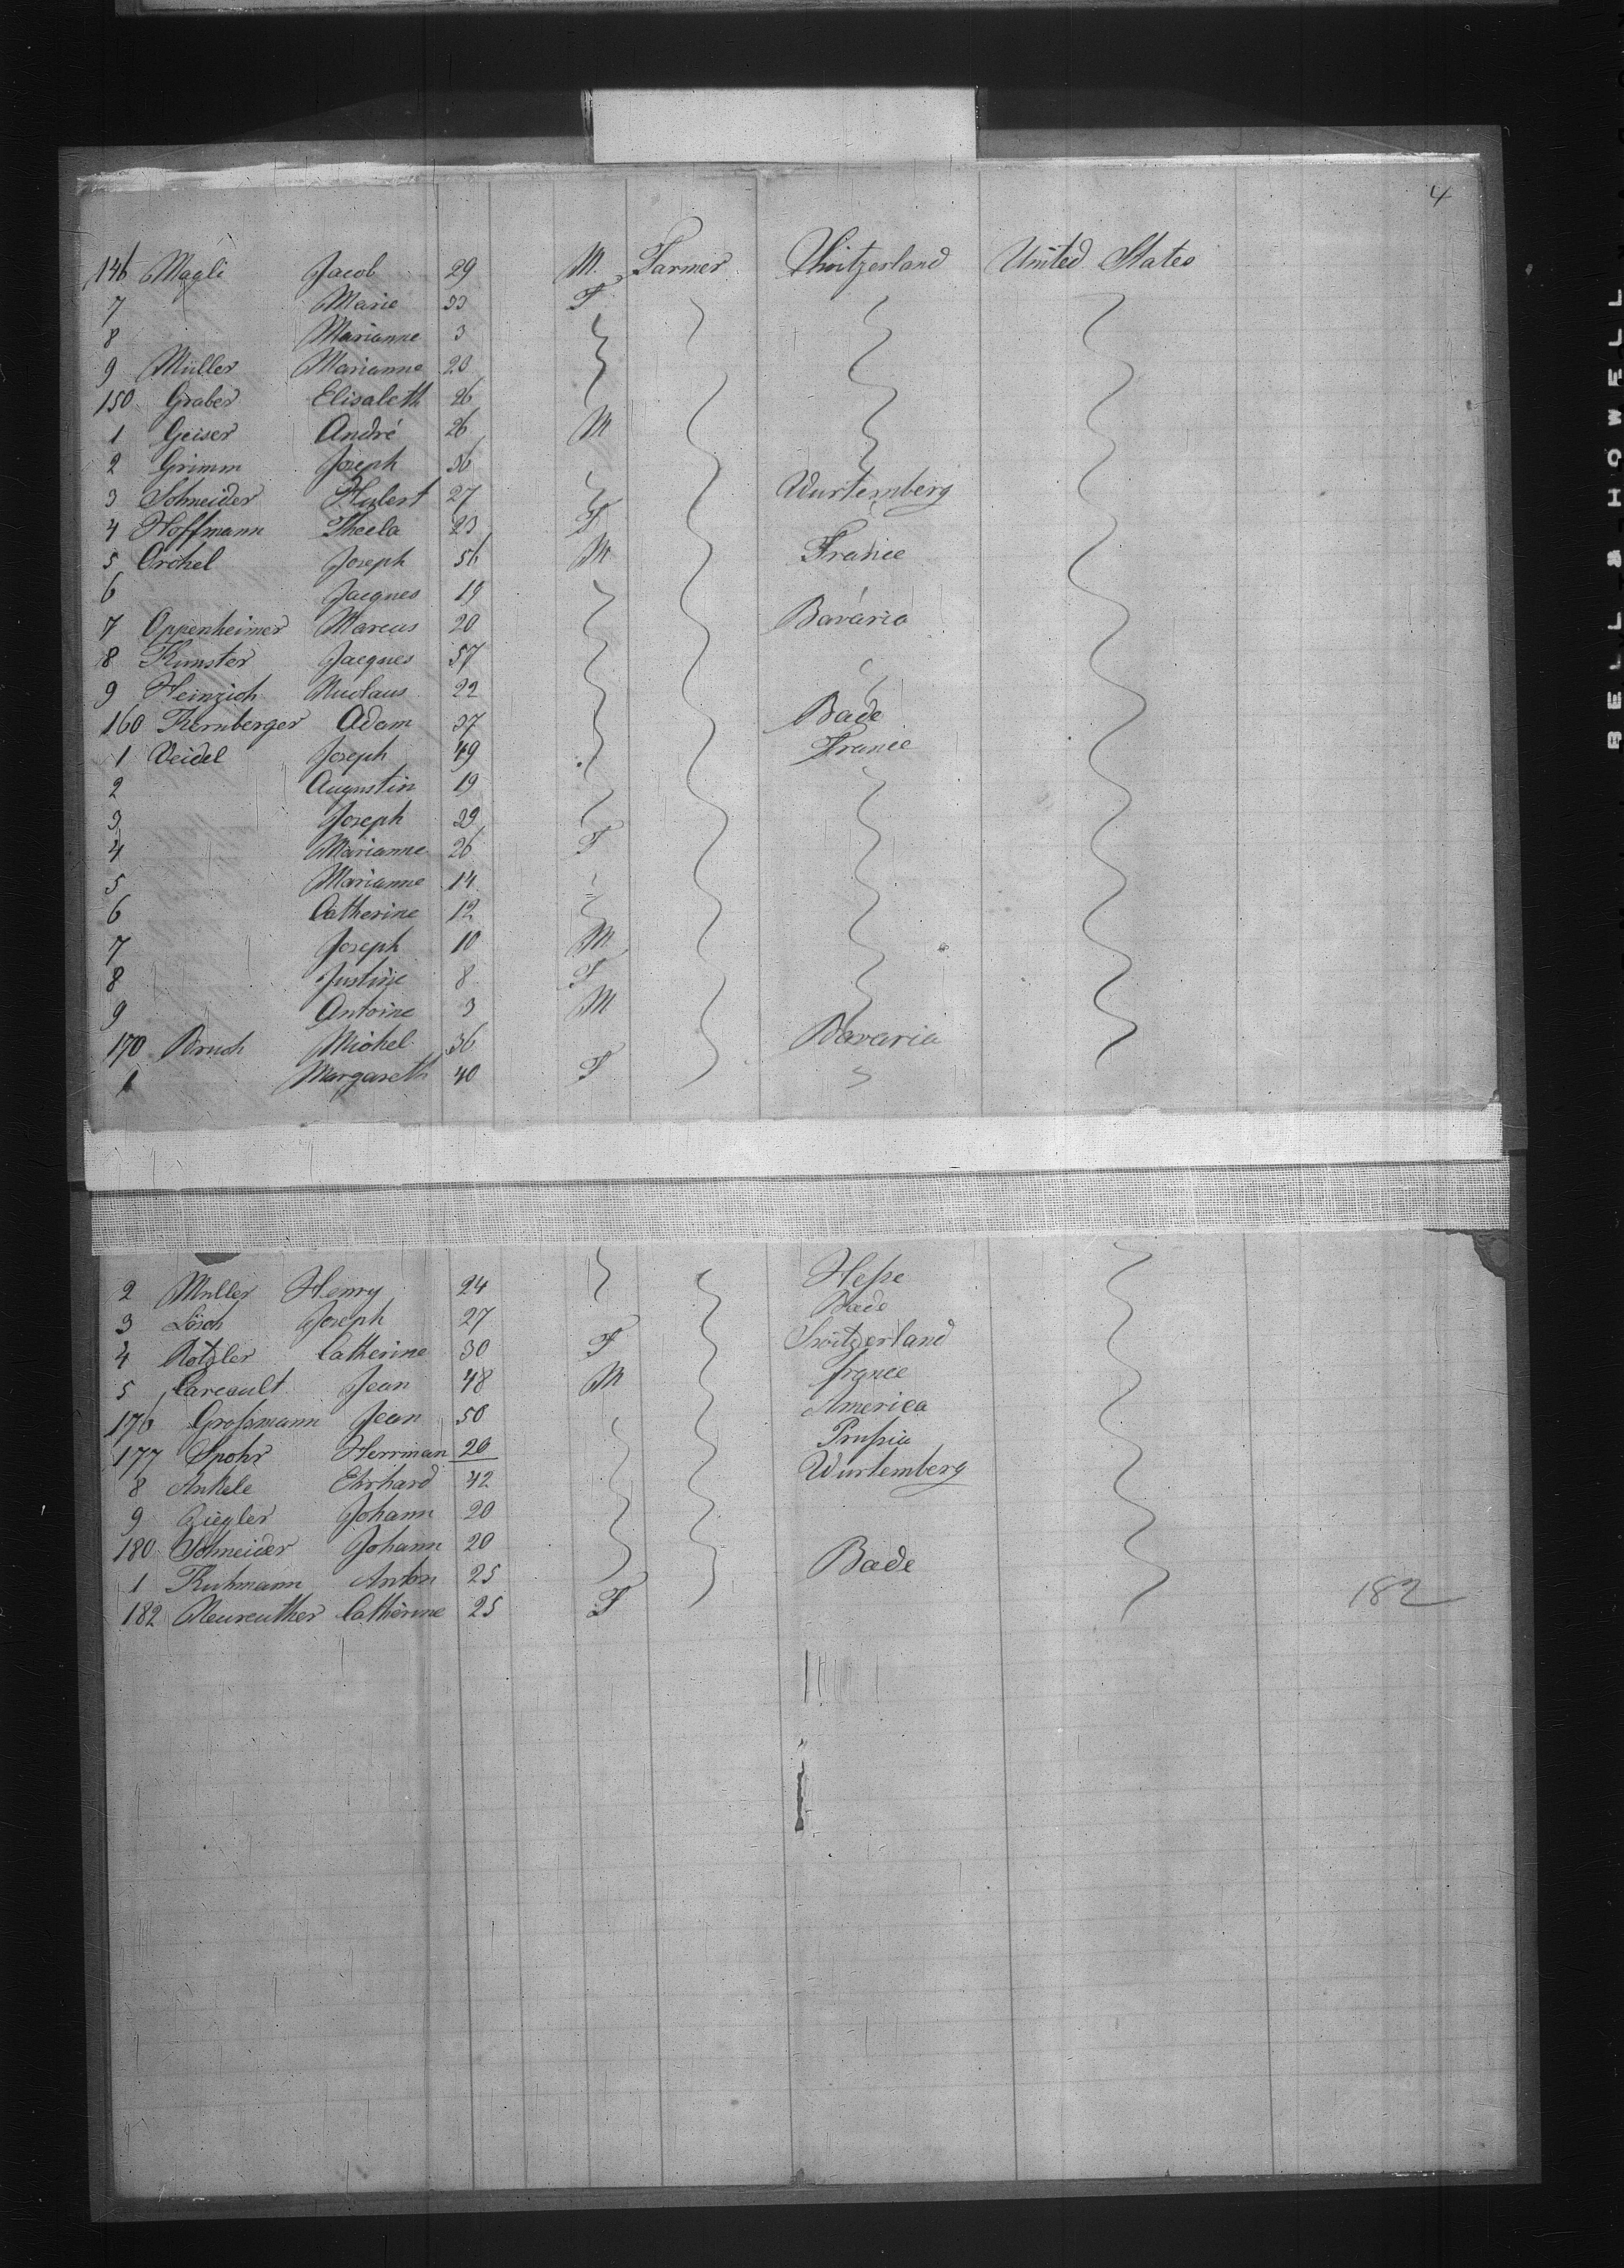 4
146 Magli Jacob 29 M. Farmer Switzerland United States
7 Marie 33 F
8 Marianne 3
9 Müller Marianne 20
150 Graber Elisabeth 26
1 Geiser André 26 M
2 Grimm Joseph 36
3 Schneider Hubert 27 Wurtemberg
4 Hoffmann Thecla 23 F
5 Orchel Joseph 56 M France
6 Jacques 19
7 Oppenheimer Marcus 20 Bavaria
8 Kunster Jacques 57
9 Heinzich Nicolaus 22
160 Kernberger Adam 37 Bade
1 Veidel Joseph 49 France
2 Augustin 19
3 Joseph 29
4 Marianne 26 F
5 Marianne 14
6 Catherine 12
7 Joseph 10 M
8 Justine 8 F
9 Antoine 3 M
170 Bruch Michel 36 Bavaria
1 Margareth 40 F
2 Muller Henry 24 Hesse
3 Lösch Joseph 27 Bade
4 Rotzler Catherine 30 F Switzerland
5 Careault Jean 48 M france
176 Grossmann Jean 50 America
177 Spohr Herrman 20 Prussia
8 Ankele Ehrhard 42 Wurtemberg
9 Ziegler Johann 20
180 Schneider Johann 20
1 Kuhmann Anton 25 Bade
182 Neureuther Cathèrine 25 F 182
BELL & HOWELL